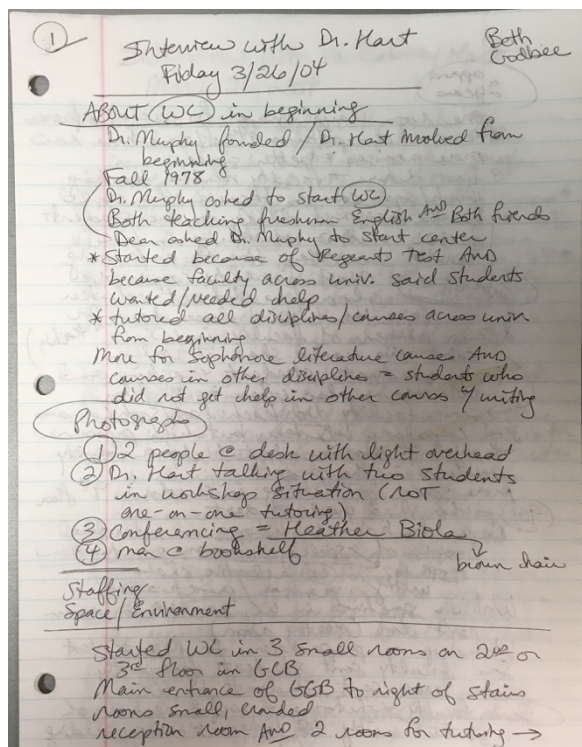 1
Interview with Dr. Hart
Friday 3/26/04
Beth
Godbee
ABOUT WC in beginning
Dr. Murphy founded / Dr. Hart involved from
beginning
Fall 1978
Dr. Murphy asked to start WC
Both teaching freshman English AND Both friends
Dean asked Dr. Murphy to start center
* Started because of Regents Test AND
because faculty across univ. said students
wanted/needed help
* tutored all disciplines/courses across univ.
from beginning
More for Sophomore literature courses AND
courses in other disciplines = students who
did not get help in other courses w/ writing
Photographs
1 2 people @ desk with light overhead
2 Dr. Hart talking with two students
in workshop situation (NOT
one-on-one tutoring)
3 Conferencing = Heather Biola
4 man @ bookshelf
brown hair
Staffing
Space/Environment
Started WC in 3 small rooms on 2nd or
3rd floor in GCB
Main entrance of GCB to right of stairs
rooms small, crowded
reception room AND 2 rooms for tutoring →